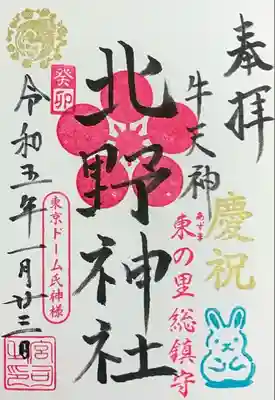 奉拝
慶祝
牛天神
東の里総鎮守
あずま
北野神社
癸卯
令和五年一月廿三日
東京ドーム氏神様
宮司之印